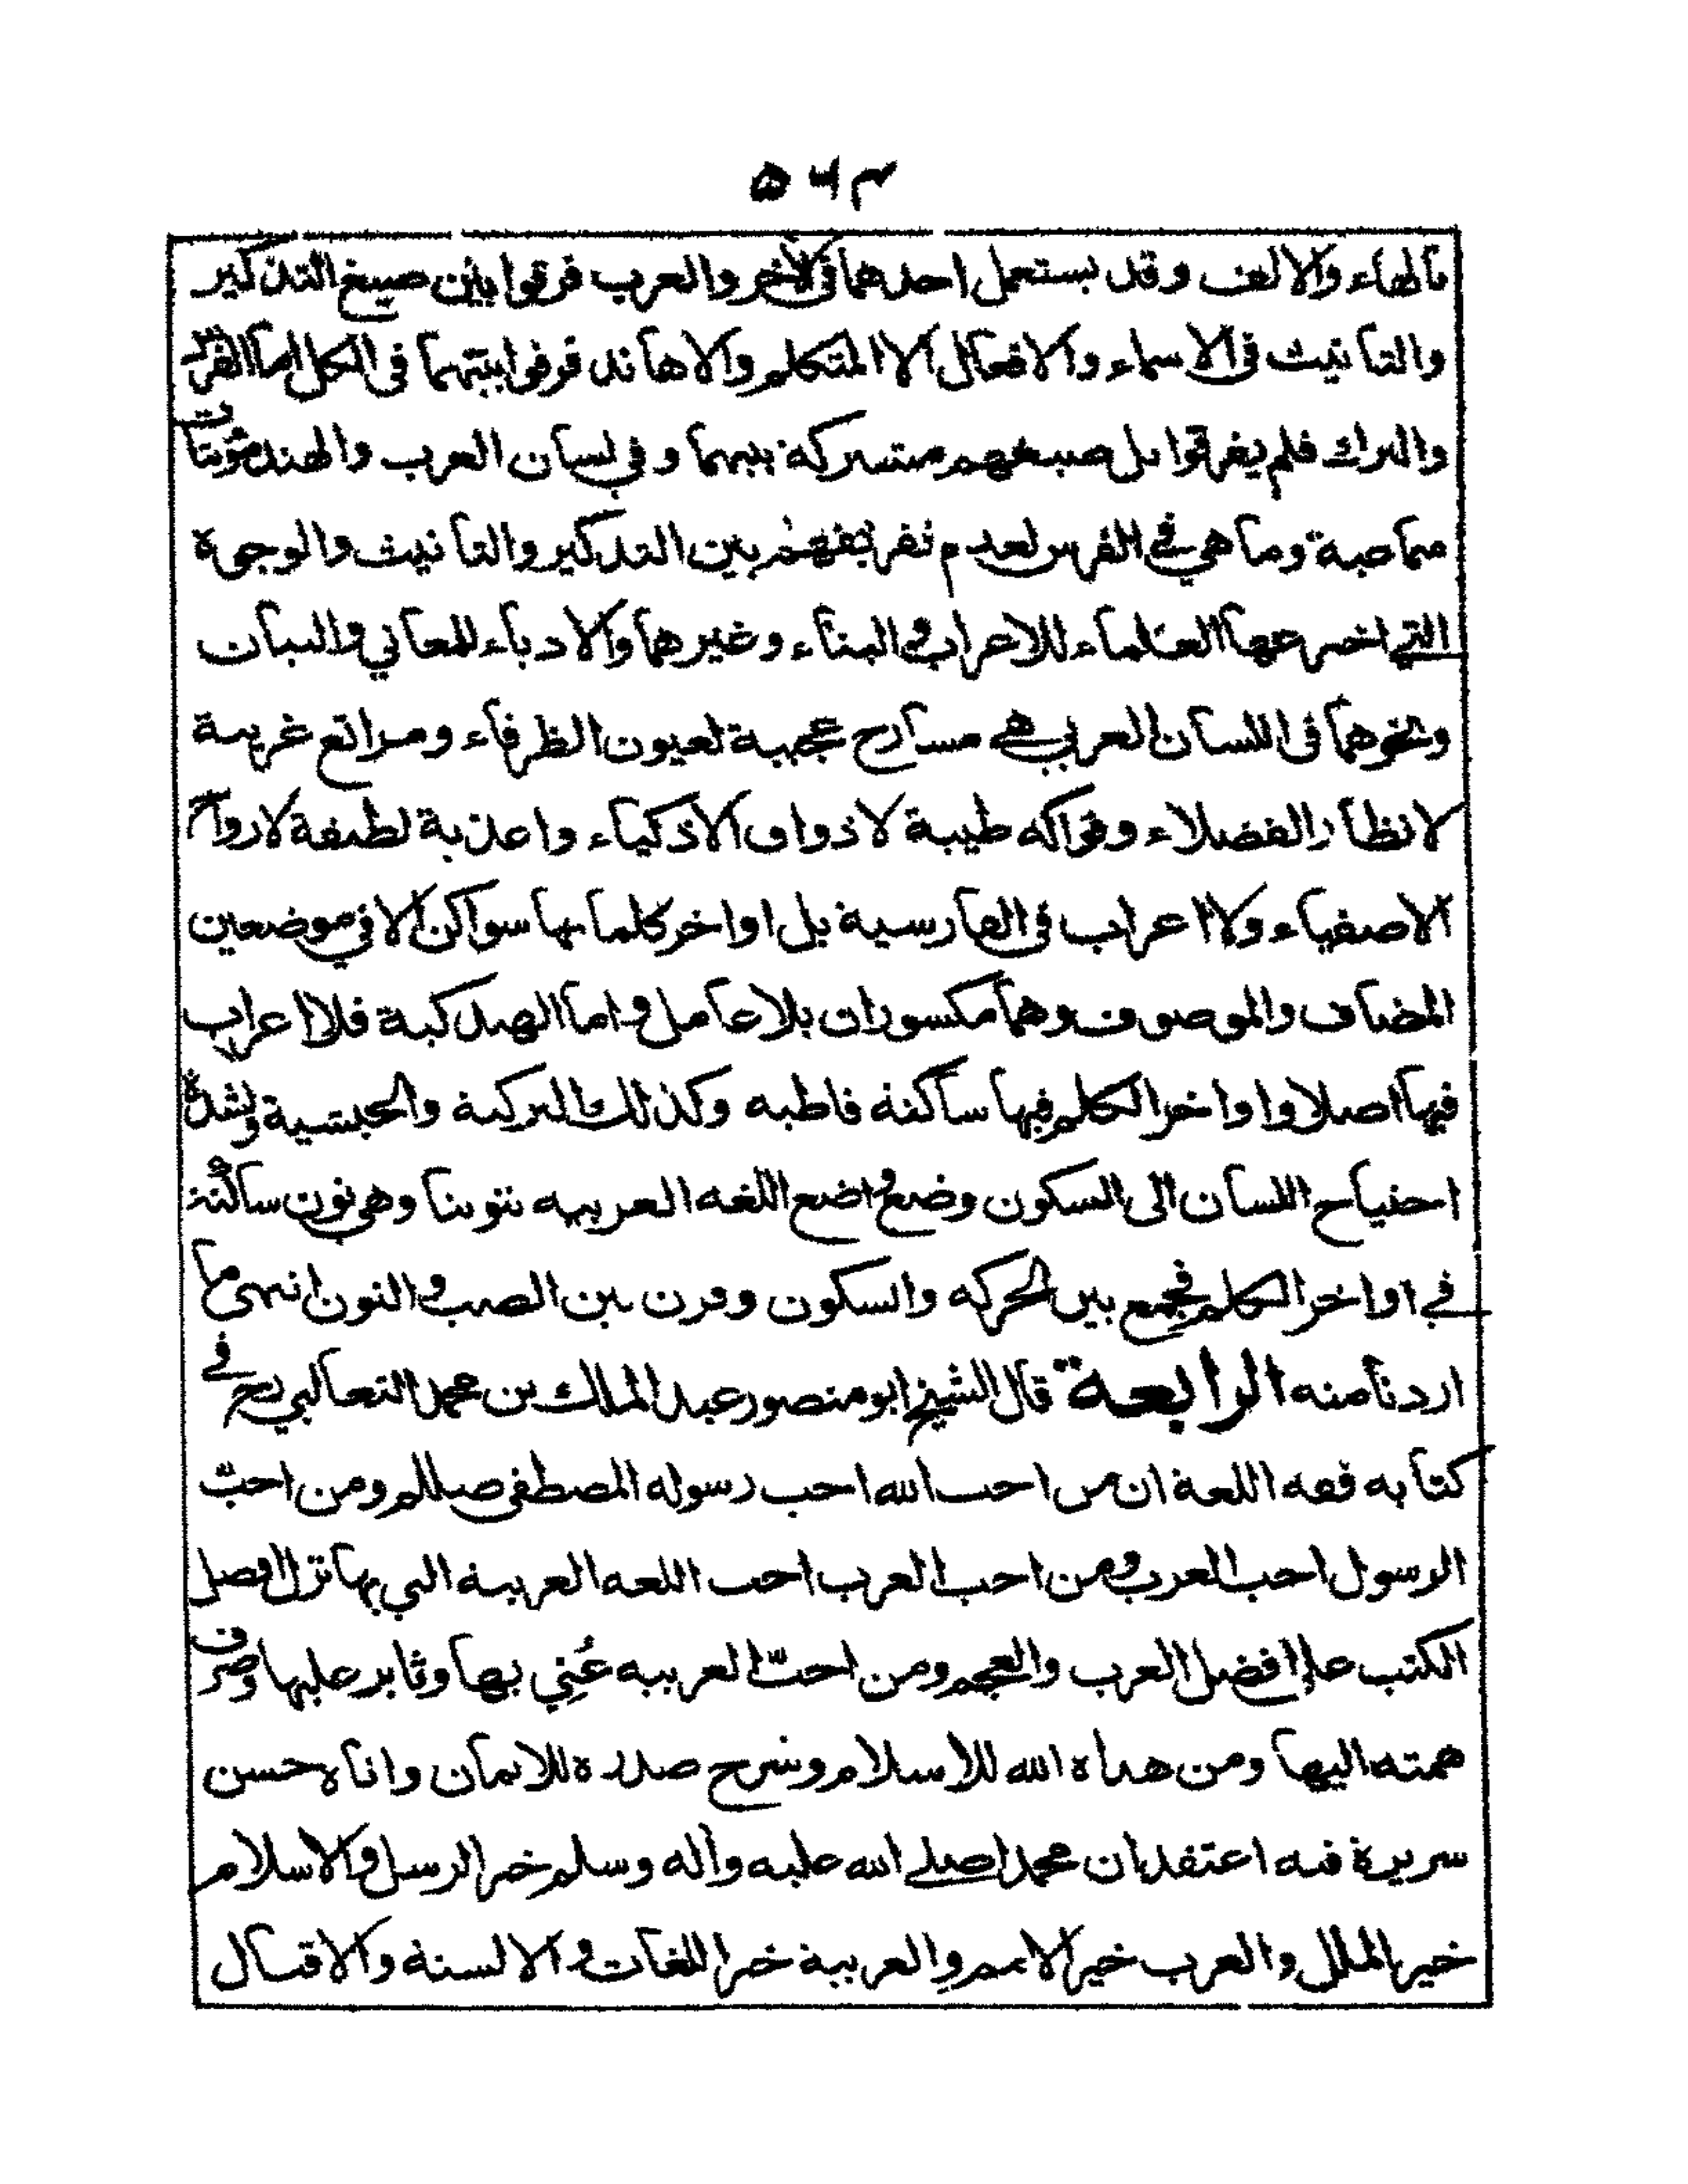 ٥٤٣
بالهاء والالف وقد يستعمل احدهما فى الأخر والعرب فرقوا بين صيغ التذكير
والتانيث فى الاسماء والافعال الا المتكلم والاهاند فرقوا بينهما فى الكل اما الفرس
والتراك فلم يفرقوا بل صيغهم مشتركة بينهما وفي لسان العرب والهند مؤنثات
سماعية وما هي في الفرس لعدم تفريقهم بين التذكير والتانيث والوجوه
التي اخترعها العلماء للاعراب والبناء وغيرهما والادباء للمعاني والبيان
ونحوهما فى اللسان العربي هي مسارح عجيبة لعيون الظرفاء ومراتع غريبة
لانظار الفضلاء وفواكه طيبة لاذواق الاذكياء واعذبة لطيفة لارواح
الاصفياء ولا اعراب فى الفارسية بل اواخر كلماتها سواكن الا في موضعين
المضاف والموصوف وهما مكسوران بلا عامل واما الهندكية فلا اعراب
فيها اصلا واواخر الكلم فيها ساكنة قاطبه وكذلك التركية والحبشية ولشدة
احتياج اللسان الى السكون وضع واضع اللغه العربيه تنوينا وهي نون ساكنة
في اواخر الكلم فجمع بين الحركه والسكون وقرن بين الضب والنون انتهى ما
اردنا منه الرابعة قال الشيخ ابو منصور عبد الملك بن محمد الثعالبي رح في
كتابه فقه اللغة ان من احب الله احب رسوله المصطفى صللم ومن احبّ
الرسول احب العرب ومن احب العرب احب اللغه العربية التي بها نزل افضل
الكتب على افضل العرب والعجم ومن احبّ العربيه عُنِي بها وثابر عليها وصرف
همته اليها ومن هداه الله للاسلام وشرح صدره للايمان واتاه حسن
سريرة فيه اعتقد ان محمدا صلى الله عليه وآله وسلم خير الرسل والاسلام
خير الملل والعرب خير الامم والعربية خير اللغات والالسنة والاقبال